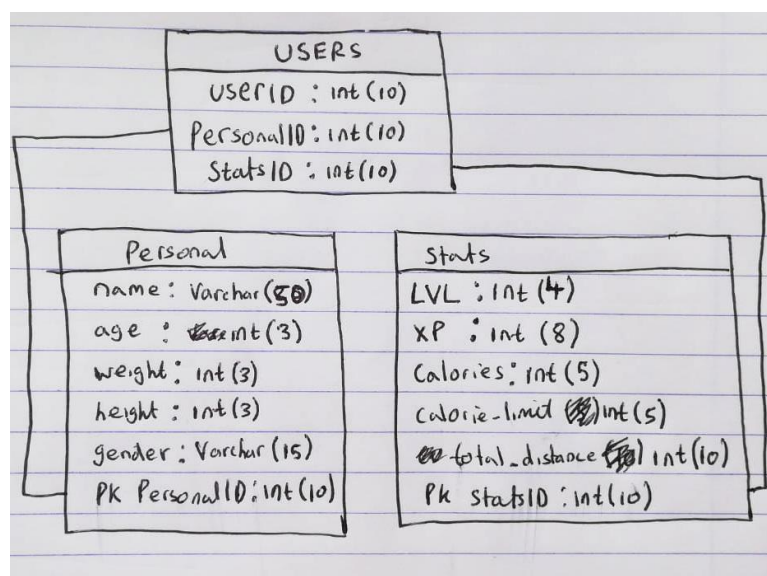 USERS
UserID : int(10)
PersonalID : int(10)
StatsID : int(10)
Personal
name : Varchar(50)
age : int(3)
weight : int(3)
height : int(3)
gender : Varchar(15)
PK PersonalID : int(10)
Stats
LVL : Int (4)
XP : int (8)
Calories : int(5)
calorie-limit int(5)
total_distance int(10)
Pk StatsID : int(10)